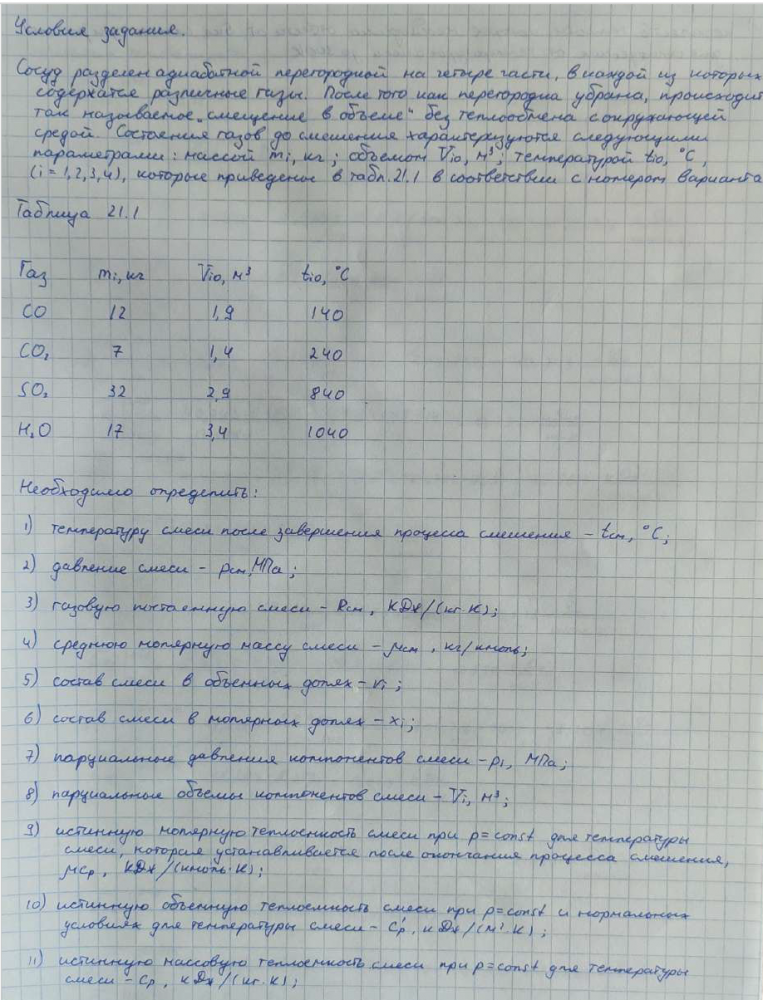 Условия задания.
Сосуд разделен адиабатной перегородкой на четыре части, в каждой из которых
содержатся различные газы. После того как перегородка убрана, происходит
так называемое „смещение в объеме" без теплообмена с окружающей
средой. Состояния газов до смешения характеризуются следующими
параметрами: массой mi, кг; объемом Vi0, м³; температурой ti0, °C,
(i = 1,2,3,4), которые приведены в табл. 21.1 в соответствии с номером варианта
Таблица 21.1
Газ mi, кг Vi0, м³ ti0, °C
CO 12 1,9 140
CO₂ 7 1,4 240
SO₂ 32 2,9 840
H₂O 17 3,4 1040
Необходимо определить:
1) температуру смеси после завершения процесса смешения – tсм, °C;
2) давление смеси – pсм, МПа;
3) газовую постоянную смеси – Rсм, кДж/(кг·К);
4) среднюю молярную массу смеси – μсм, кг/кмоль;
5) состав смеси в объемных долях – ri;
6) состав смеси в молярных долях – xi;
7) парциальные давления компонентов смеси – pi, МПа;
8) парциальные объемы компонентов смеси – Vi, м³;
9) истинную молярную теплоемкость смеси при p=const для температуры
смеси, которая устанавливается после окончания процесса смешения,
μcp, кДж/(кмоль·К);
10) истинную объемную теплоемкость смеси при p=const и нормальных
условиях для температуры смеси – c'p, кДж/(м³·К);
11) истинную массовую теплоемкость смеси при p=const для температуры
смеси – cp, кДж/(кг·К);